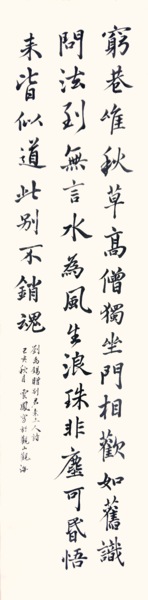 窮巷唯秋草高僧獨坐門相歡如舊識
問法到無言水為風生浪珠非塵可昏悟
來皆似道此別不銷魂
劉禹錫贈別君素上人詩
己亥秋月雲鳳書於觀山觀海